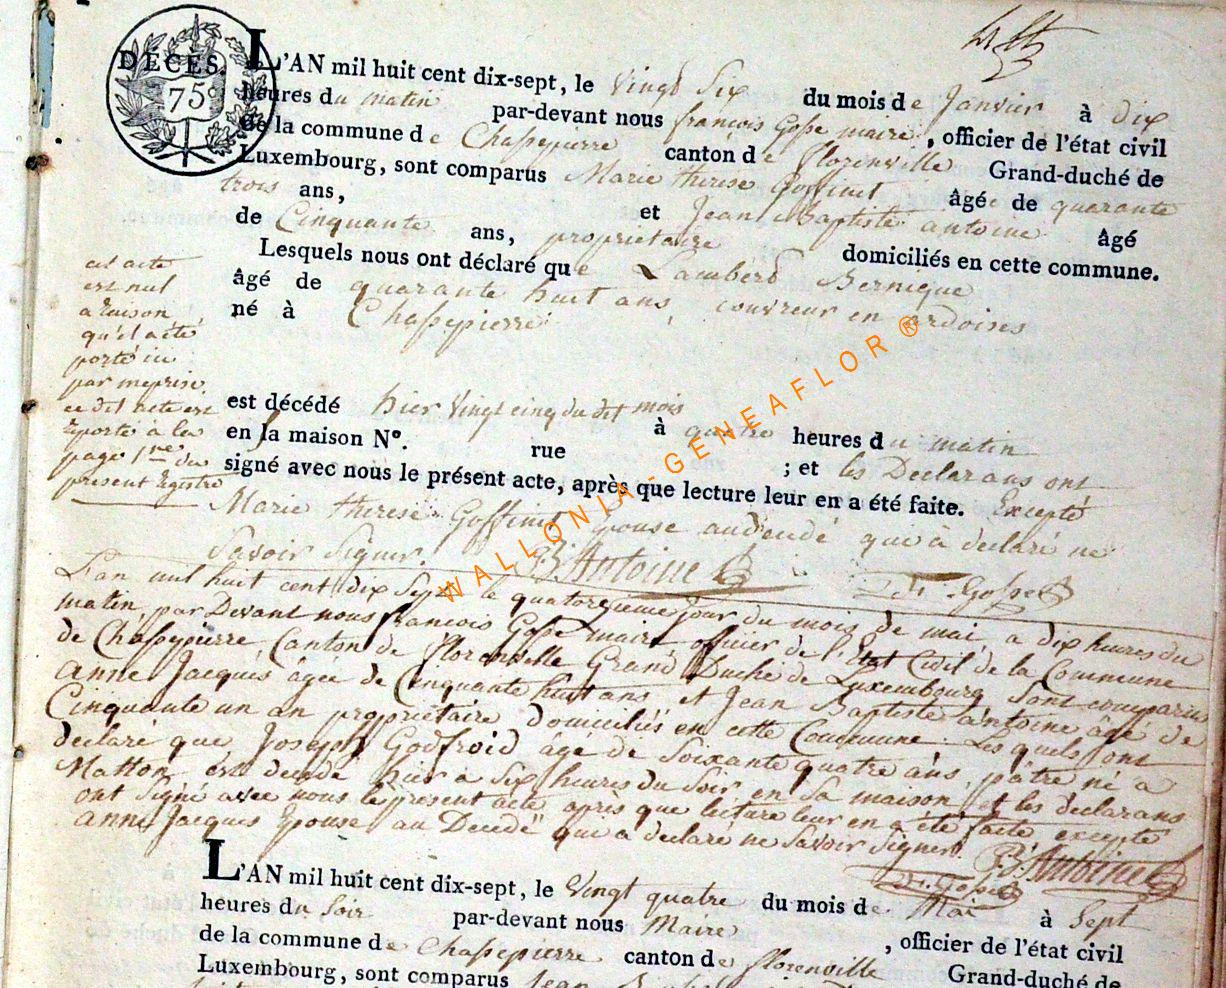 DÉCÈS.
75c
L'AN mil huit cent dix-sept, le Vingt Six du mois de Janvier à dix
heures du matin par-devant nous francois Gosse maire, officier de l'état civil
de la commune de Chassepierre canton de florenville Grand-duché de
Luxembourg, sont comparus Marie therese Goffinet âgé de quarante
trois ans, et Jean Baptiste antoine âgé
de Cinquante ans, propriétaire domiciliés en cette commune.
Lesquels nous ont déclaré que Lamberd Bernique
âgé de quarante huit ans, couvreur en ardoises
né à Chassepierre
est décédé hier Vingt cinq du dit mois
à quatre heures du matin
en la maison N°. rue ; et les Declarans ont
signé avec nous le présent acte, après que lecture leur en a été faite. Excepté
Marie therese Goffinet Epouse au decedé que a declaré ne
Savoir Signer.
cet acte
est nul
a raison
qu'il a été
porté ici
par meprise
ce dit acte est
reporté a la
page 1re du
present Registre
JB Antoine
fr. Gosse
L'an mil huit cent dix Sept le quatorzieme jour du mois de mai, a dix heures du
matin, par Devant nous francois Gosse maire officier de l'Etat Civil de la Commune
de Chassepierre, Canton de florenville Grand Duché de Luxembourg Sont comparus
anne Jacques âgée de Cinquante huit ans et Jean Baptiste antoine âgé de
Cinquante un an propriétaire Domiciliés en cette Commune. Les quels ont
declaré que Joseph Godfroid âgé de Soixante quatre ans, pâtre né a
Matton est decedé hier a Six heures du Soir en Sa maison, et les declarans
ont Signé avec nous le present acte apres que lecture leur en a été faite excepté
anne Jacques Epouse au Decedé que a declaré ne Savoir Signer.
JB Antoine
fr. Gosse
L'AN mil huit cent dix-sept, le Vingt quatre du mois de Mai à Sept
heures du Soir par-devant nous Maire , officier de l'état civil
de la commune de Chassepierre canton de florenville Grand-duché de
Luxembourg, sont comparus Jean
WALLONIA-GENEAFLOR®